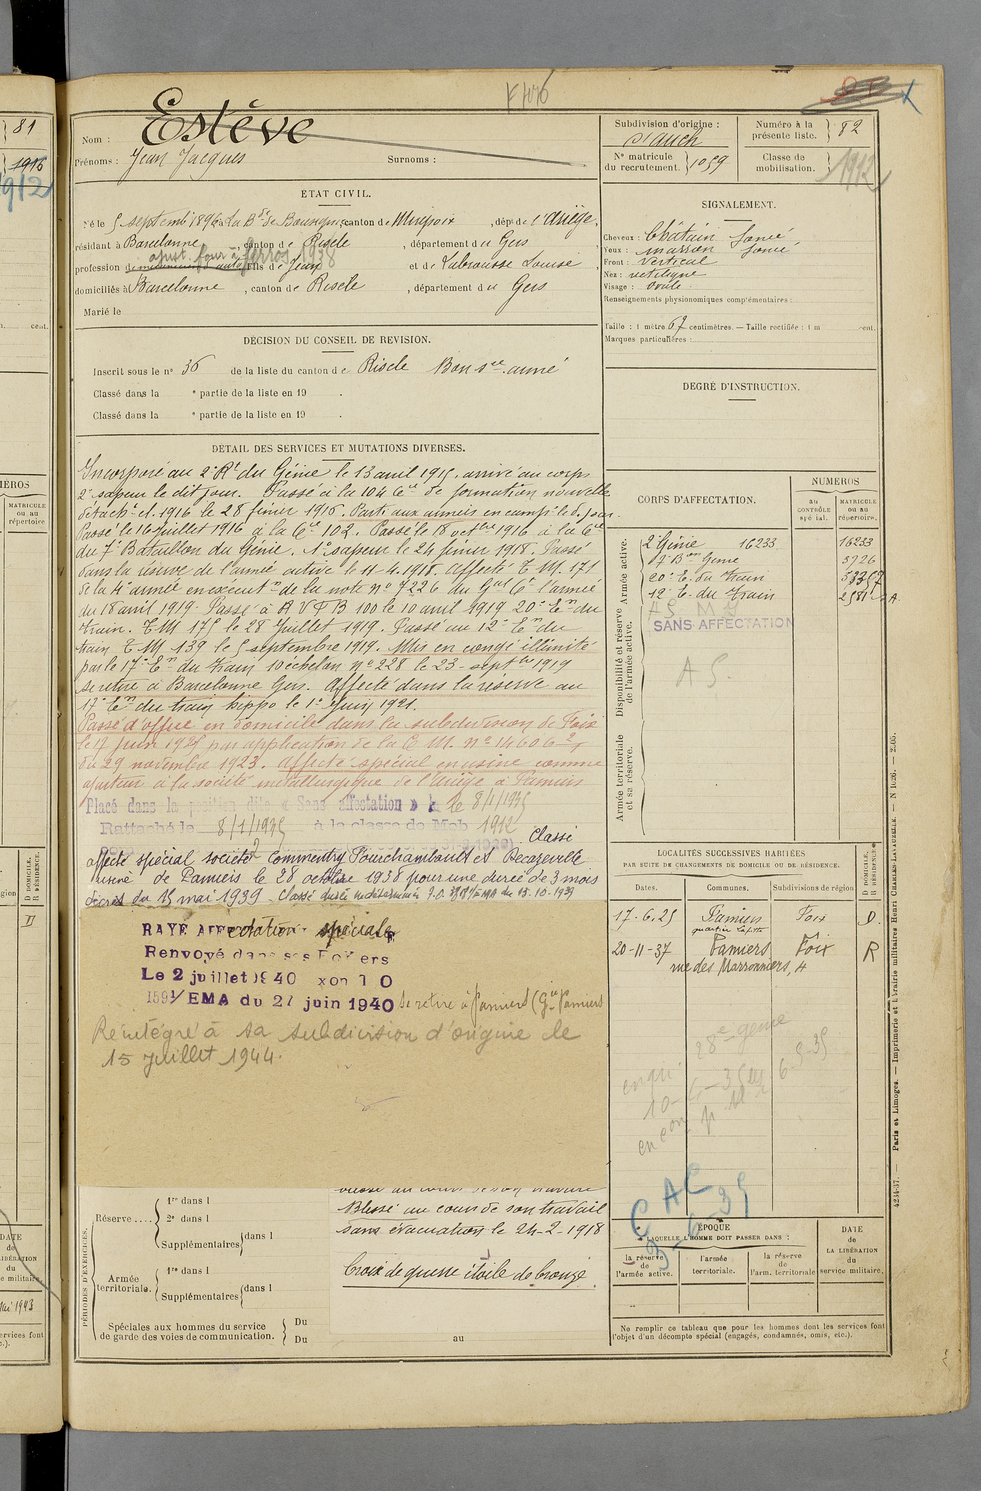 Estève
Nom :
Prénoms : Jean Jacques Surnoms :
Subdivision d'origine :
d'auch
Numéro à la présente liste. } 82
N° matricule du recrutement. } 1059
Classe de mobilisation. } 1912
ETAT CIVIL.
Né le 5 septemb 1896 à La Bde de canton de Mirepoix, dépt de l'Ariège,
résidant à Barcelonne, canton de Riscle, département du Gers
ajust. four à ferros 1938
profession de fils de Jean et de Labrousse Louise,
domiciliés à Barcelonne, canton de Riscle, département du Gers
Marié le
SIGNALEMENT.
Cheveux : Châtain foncé
Yeux : marron foncé
Front : vertical
Nez : rectiligne
Visage : ovale
Renseignements physionomiques complémentaires :
Taille : 1 mètre 67 centimètres. — Taille rectifiée : 1 m cent.
Marques particulières :
DÉCISION DU CONSEIL DE REVISION.
Inscrit sous le n° 36 de la liste du canton de Riscle Bon sce armé
Classé dans la e partie de la liste en 19 .
Classé dans la e partie de la liste en 19 .
DEGRÉ D'INSTRUCTION.
DÉTAIL DES SERVICES ET MUTATIONS DIVERSES.
Incorporé au 2e Rt du Génie le 13 avril 1915, arrivé au corps
2e sapeur le dit jour. Passé à la 104 Cie de formation nouvelle
détach. et. 1916 le 28 février 1916. Parti aux armées en camp. le d. jour.
Passé le 16 juillet 1916 à la Cie 102. Passé le 18 octbre 1916 à la Cie
du 7e Bataillon du Génie. 1e sapeur le 24 février 1918. Passé
dans la réserve de l'armée active le 11-4-1918. Affecté T.M. 171
de la 4e armée en exécutn de la note n° 7226 du Gal Ct l'armée
du 18 avril 1919. Passé à R V F B 100 le 10 avril 1919 20e En du
train. T.M 175 le 28 Juillet 1919. Passé au 12e En du
train T.M 139 le 5 septembre 1919. Mis en congé illimité
par le 17e En du train 10e échelon n° 228 le 23 septbre 1919
se retire à Barcelonne Gers. Affecté dans la réserve au
17e En du train hippo le 1e Juin 1921.
Passé d'office en domicile dans la subdivision de Foix
le 17 Juin 1925 par application de la C M. n° 14606 2/1
du 29 novembre 1923. Affecté spécial en usine comme
ajusteur à la société métallurgique de l'Ariège à Pamiers
Placé dans la position dite « Sans affectation » le 8/1/1935
Rattaché le 8/1/1935 à la classe de Mob 1912
Classé
affecté spécial société Commentry Fourchambault et Decazeville
usine de Pamiers le 28 octobre 1938 pour une durée de 3 mois
décret du 15 mai 1939 - Classé durée indéterminée
RAYÉ AFFectation spéciale
Renvoyé dans ses Foyers
Le 2 juillet 1940
1591/EMA du 27 juin 1940 se retire à Pamiers
Réintégré à sa subdivision d'origine le
15 Juillet 1944.
CORPS D'AFFECTATION.
NUMÉROS
au CONTRÔLE spécial.
MATRICULE ou au répertoire.
Armée active.
2e Génie 16233 16233
7e Bon Génie 3726
20e E. du Train
12e E. du Train
Disponibilité et réserve de l'armée active.
SANS AFFECTATION
A S.
Armée territoriale et sa réserve.
LOCALITÉS SUCCESSIVES HABITÉES
PAR SUITE DE CHANGEMENTS DE DOMICILE OU DE RÉSIDENCE.
D DOMICILE.
R RÉSIDENCE.
Dates. Communes. Subdivisions de région
17-6-25 Pamiers Foix D.
quartier Lafitte
20-11-37 Pamiers Foix R
rue des Marronniers, 4
28e génie
C A C
3-6-35
PÉRIODES D'EXERCICES.
Réserve.... { 1re dans l
2e dans l
Supplémentaires { dans l
Armée territoriale. { 1re dans l
Supplémentaires { dans l
Spéciales aux hommes du service de garde des voies de communication. { Du
Du au
Blessé au cours de son travail
sans évacuation le 24-2-1918
Croix de guerre étoile de bronze
ÉPOQUE
À LAQUELLE L'HOMME DOIT PASSER DANS :
la réserve de l'armée active.
l'armée territoriale.
la réserve de l'arm. territoriale
DATE de LA LIBÉRATION du service militaire.
Ne remplir ce tableau que pour les hommes dont les services font l'objet d'un décompte spécial (engagés, condamnés, omis, etc.).
Paris et Limoges. — Imprimerie et librairie militaires Henri CHARLES-LAVAUZELLE.
81
1916
1912